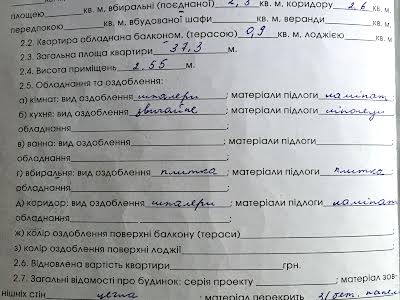 площею кв. м, вбиральні (поєднаної) 2,3 кв. м, коридору 2,6 кв. м
передпокою кв. м, вбудованої шафи кв. м, веранди кв. м.
2.2. Квартира обладнана балконом, (терасою) 0,9 кв. м, лоджією кв. м.
2.3. Загальна площа квартири 37,3 м.
2.4. Висота приміщень 2,55 м.
2.5. Обладнання та оздоблення:
а) кімнат: вид оздоблення шпалери ; матеріали підлоги ламінат
б) кухня: вид оздоблення звичайне ; матеріали підлоги лінолеум
обладнання ;
в) ванна: вид оздоблення ; матеріали підлоги ;
обладнання ;
г) вбиральня: вид оздоблення плитка ; матеріали підлоги плитка
обладнання ;
д) коридор: вид оздоблення шпалери ; матеріали підлоги ламінат
обладнання ;
ж) колір оздоблення поверхні балкону (тераси) ;
з) колір оздоблення поверхні лоджії ;
2.6. Відновлена вартість квартири грн.
2.7. Загальні відомості про будинок: серія проекту ; матеріал зов-
нішніх стін цегла , матеріал перекрить З/бет. панел